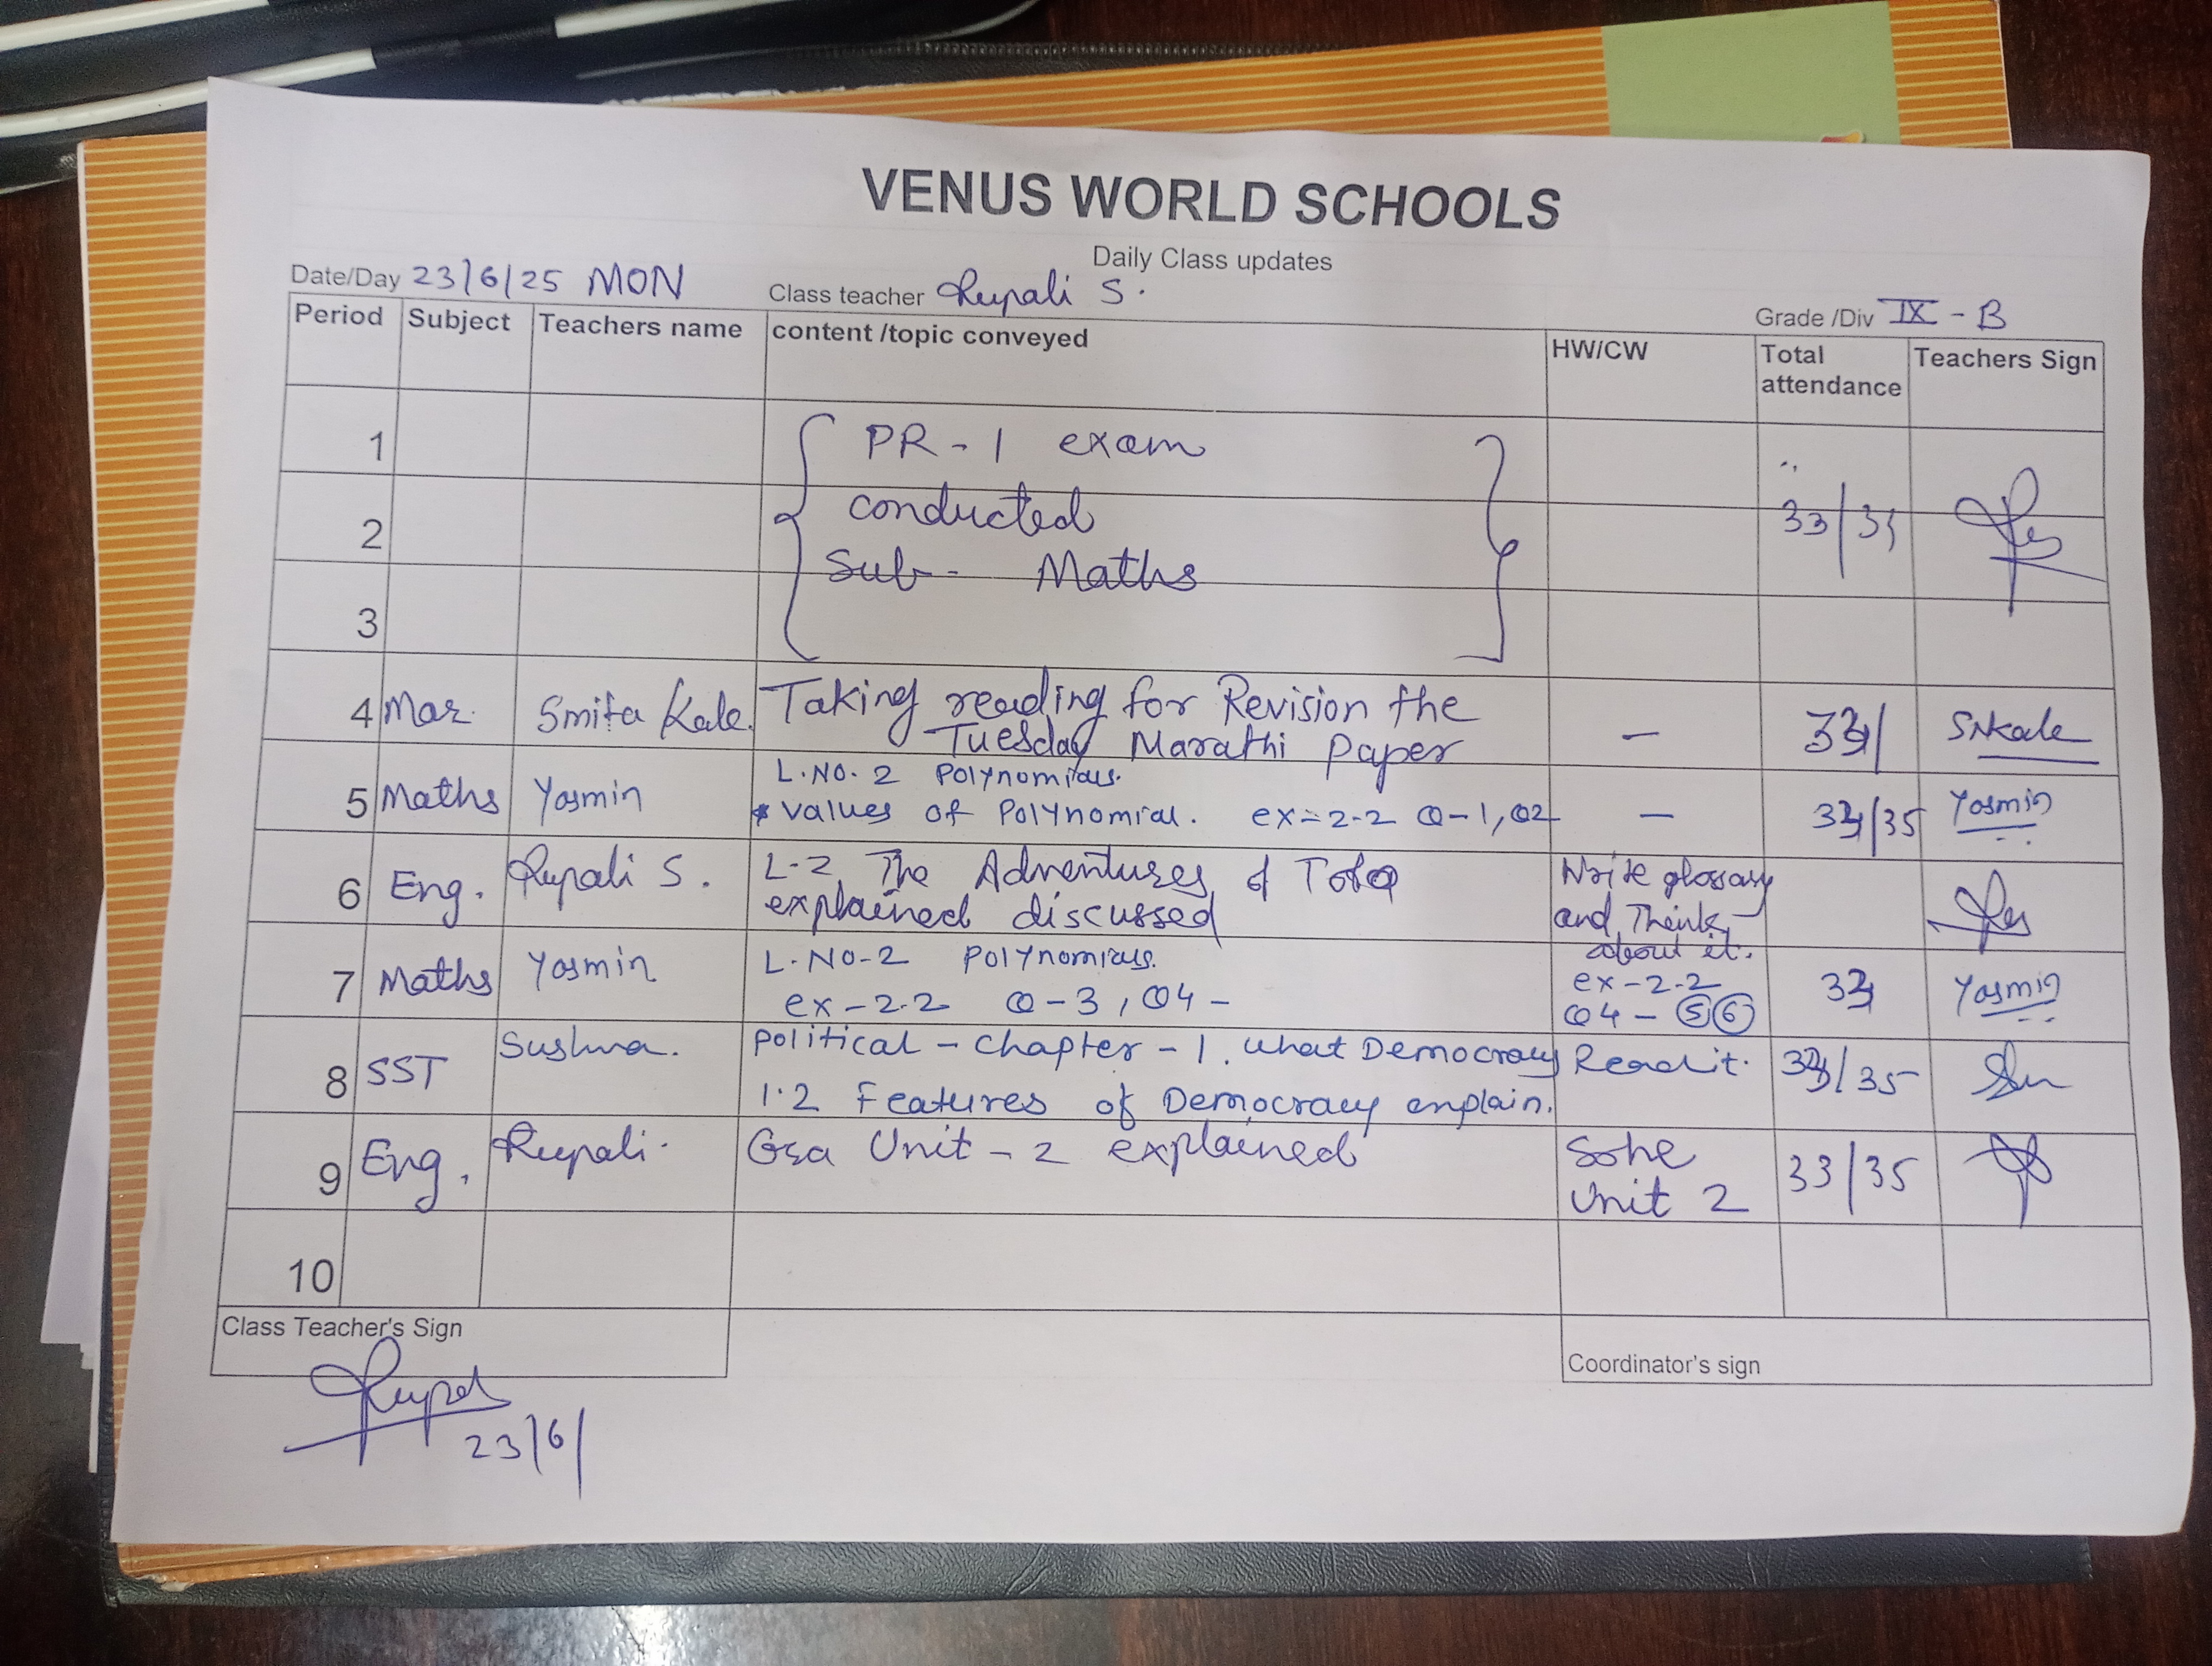 VENUS WORLD SCHOOLS
Daily Class updates
Date/Day 23/6/25 MON Class teacher Rupali S. Grade /Div IX - B
Period Subject Teachers name content /topic conveyed HW/CW Total attendance Teachers Sign
1 PR - 1 exam
2 conducted 33/35
Sub - Maths
3
4 Mar. Smita Kale. Taking reading for Revision the — SNKale
Tuesday Marathi Paper
5 Maths Yasmin L.NO. 2 Polynomials. — Yasmin
values of Polynomial. ex = 2.2 Q-1, Q2
6 Eng. Rupali S. L-2 The Adventures of Toto Write glossary
explained discussed and Think
about it.
7 Maths Yasmin L.NO-2 Polynomials. ex-2.2 Yasmin
ex-2.2 Q-3, Q4- Q4- 5 6
8 SST Sushma. Political - Chapter - 1. what Democracy Read it.
1.2 Features of Democracy explain.
9 Eng. Rupali. Unit - 2 explained 33/35
Unit 2
10
Class Teacher's Sign
Coordinator's sign
23/6/